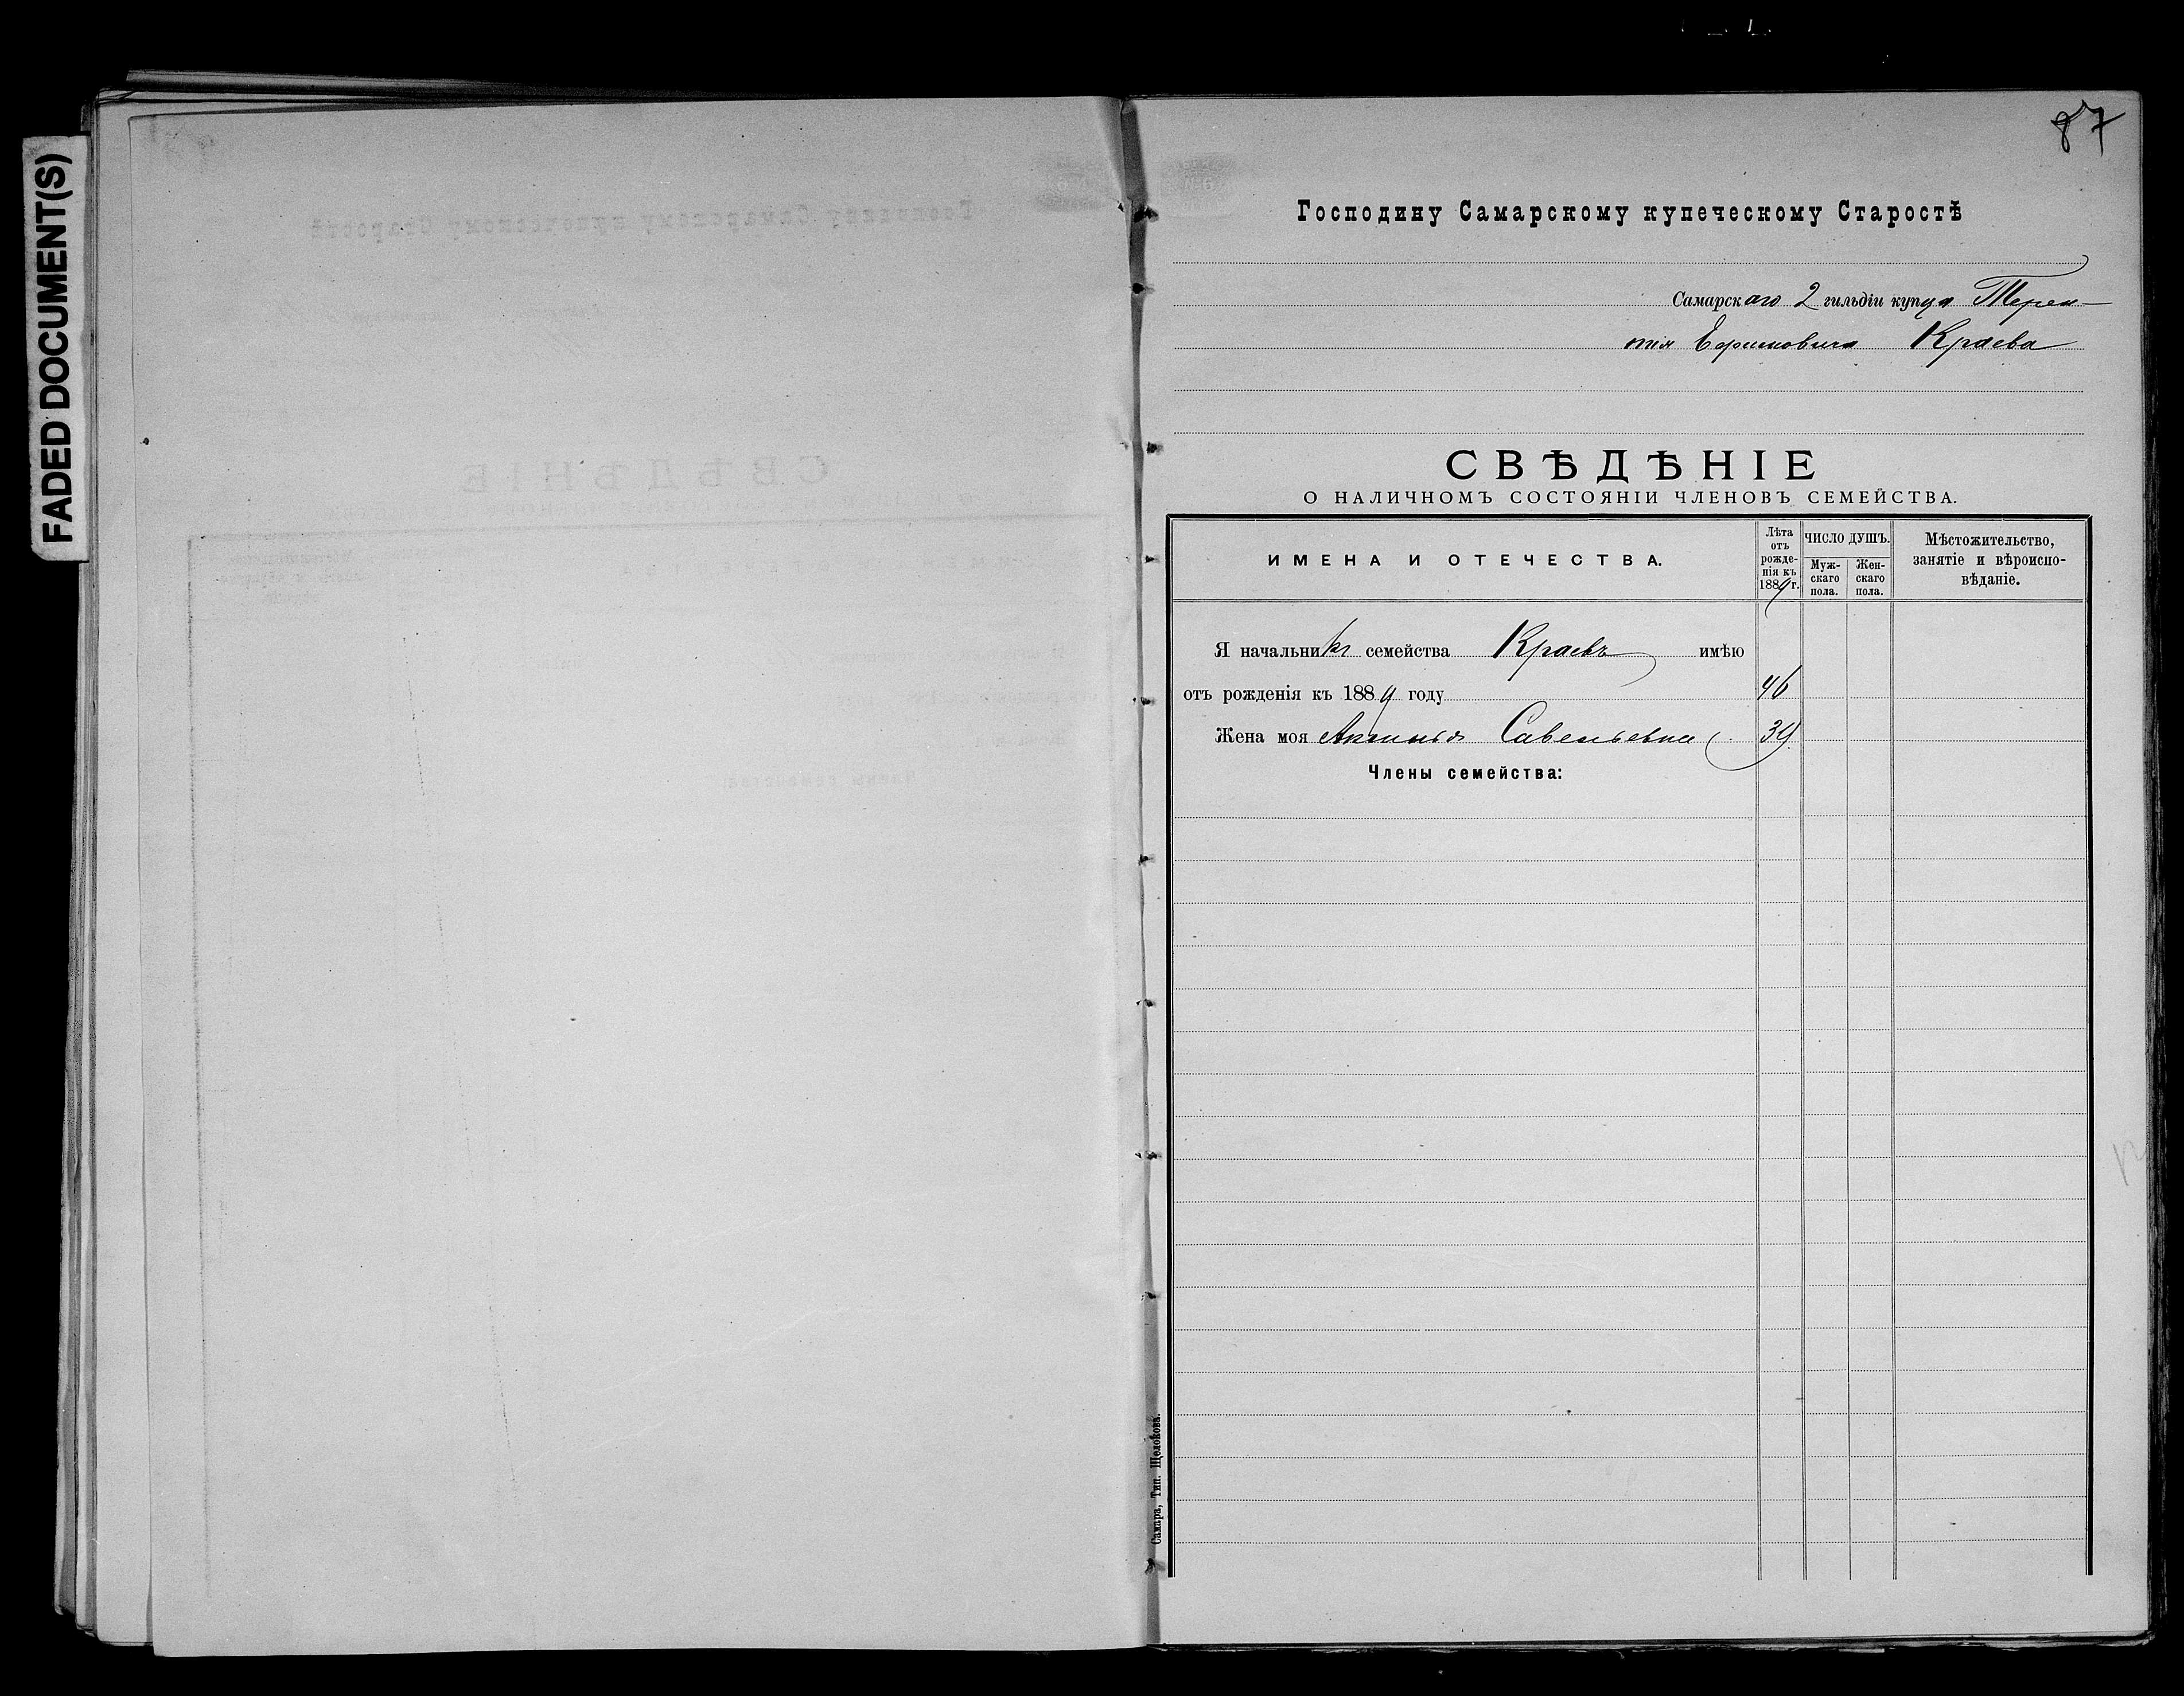 FADED DOCUMENT(S)
87
Господину Самарскому купеческому Старостѣ
Самарскаго 2 гильдіи купца Терен-
тія Ефимовича Краева
СВѢДѢНІЕ
О НАЛИЧНОМЪ СОСТОЯНІИ ЧЛЕНОВЪ СЕМЕЙСТВА.
ИМЕНА И ОТЕЧЕСТВА.
Лѣта
отъ
рожде-
нія къ
1889 г.
ЧИСЛО ДУШЪ.
Муж-
скаго
пола.
Жен-
скаго
пола.
Мѣстожительство,
занятіе и вѣроиспо-
вѣданіе.
Я начальникъ семейства Краевъ имѣю
отъ рожденія къ 1889 году 46
Жена моя Аксинья Савельевна 39
Члены семейства:
Самара, Тип. Щелокова.